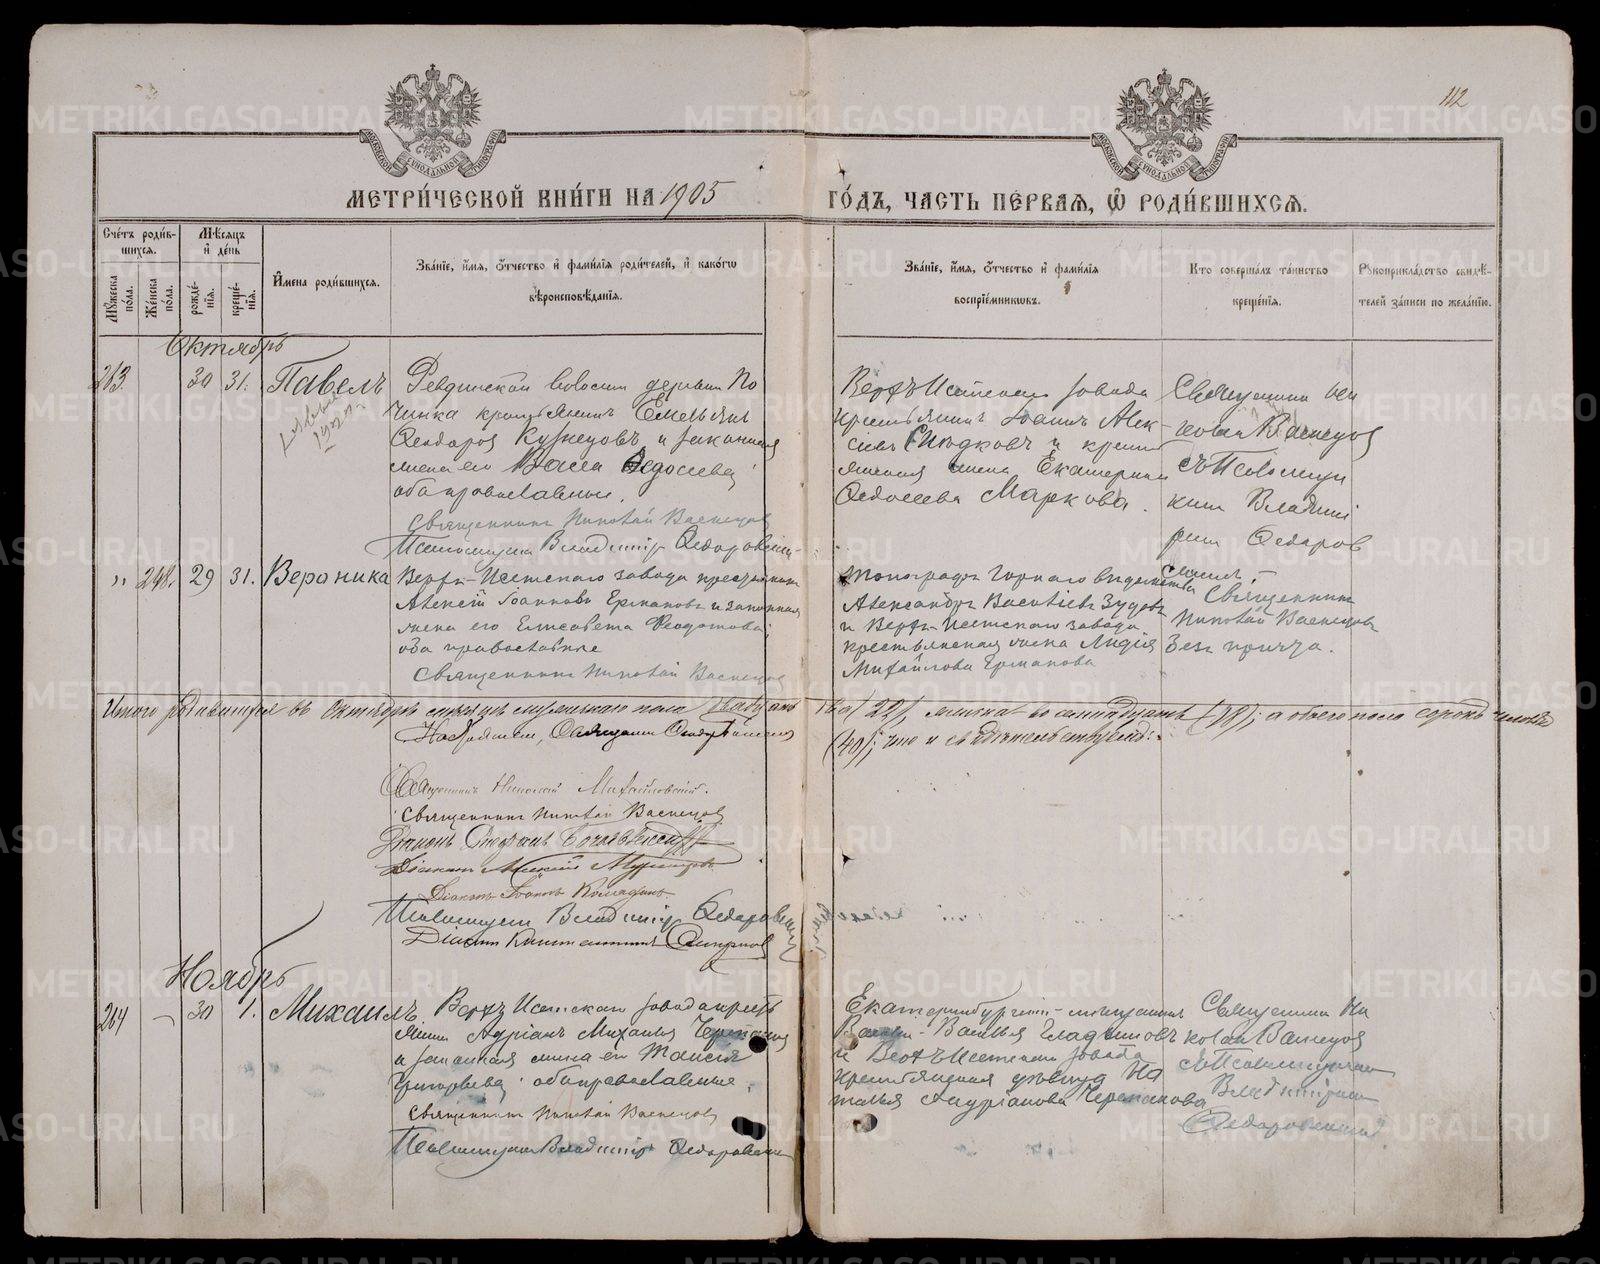 112
МЕТРИ́ЧЕСКОЙ КНИ́ГИ НА 1905
ГО́ДЪ, ЧАСТЬ ПЕ́РВАЯ, Ѡ РОДИ́ВШИХСЯ.
Сче́тъ роди́в-
шихся.
Мꙋ́жеска по́ла.
Же́нска по́ла.
Мѣ́сяцъ и҆ де́нь
рожде́-
нїя.
креще́-
нїя.
И҆́мена роди́вшихся.
Зва́нїе, и҆́мя, ѻ҆́тчество и҆ фами́лїя роди́телей, и҆ како́гѡ
вѣроисповѣ́данїя.
Зва́нїе, и҆́мя, ѻ҆́тчество и҆ фами́лїя
воспрїе́мникѡвъ.
Кто соверша́лъ та́инство
креще́нїя.
Рꙋкоприкла́дство свидѣ́-
телей за́писи по жела́нїю.
Октябрь
263. 30 31. Павелъ
Ревдинской волости деревни По
чинка крестьянинъ Емельянъ
Ѳеодоровъ Кузнецовъ и законная
жена его Васса Ѳедосѣева;
оба православные.
Священникъ Николай Васнецов
Псаломщикъ Владиміръ
Верхъ-Исетскаго завода
крестьянинъ Іоаннъ Алек-
и кресть
жена Екатерина
Ѳедосѣева Маркова.
Священникъ Ни
колай Васнецов
съ Псаломщи
комъ Владимі
ромъ
" 248. 29 31. Вероника
Верхъ-Исетскаго завода крестьянинъ
Алексій Іоанновъ Ермаковъ и законная
жена его Елисавета Ѳеодотова;
оба православные
Священникъ Николай Васнецов
Топографъ Горнаго вѣдомства
Александръ Васильевъ Зудовъ
и Верхъ-Исетскаго завода
крестьянская жена Лидія
Михайлова Ермакова
Священникъ
Николай Васнецовъ
безъ причта.
Итого родившихся въ Октябрѣ мѣсяцѣ мужескаго пола двадцать
два (22), женска восемнадцать (18); а обоего пола сорокъ человѣкъ
(40); что и свидѣтельствуемъ:
Священникъ Николай Михайловскій.
Священникъ Николай Васнецов
Діаконъ
Діаконъ
Діаконъ Іоаннъ
Псаломщикъ Владиміръ
Діаконъ Константинъ Смирновъ
Ноябрь
264 — 30 1. Михаилъ
Верхъ Исетскаго завода кресть
янинъ Адріанъ Михаиловъ Черепановъ
и законная жена его Таисія
Григорьева; оба православные.
Священникъ Николай Васнецов
Псаломщикъ Владиміръ
Екатеринбургскій мѣщанинъ
и Верхъ-Исетскаго завода
крестьянская дѣвица На
талья Адріанова Черепанова
Священникъ Ни
колай Васнецов
съ Псаломщикомъ
Владиміромъ